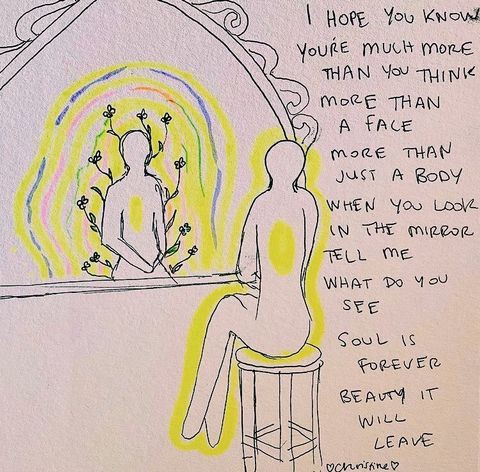 I HOPE YOU KNOW
YOU'RE MUCH MORE
THAN YOU THINK
MORE THAN
A FACE
MORE THAN
JUST A BODY
WHEN YOU LOOK
IN THE MIRROR
TELL ME
WHAT DO YOU
SEE
SOUL IS
FOREVER
BEAUTY IT
WILL
LEAVE
♡christine♡